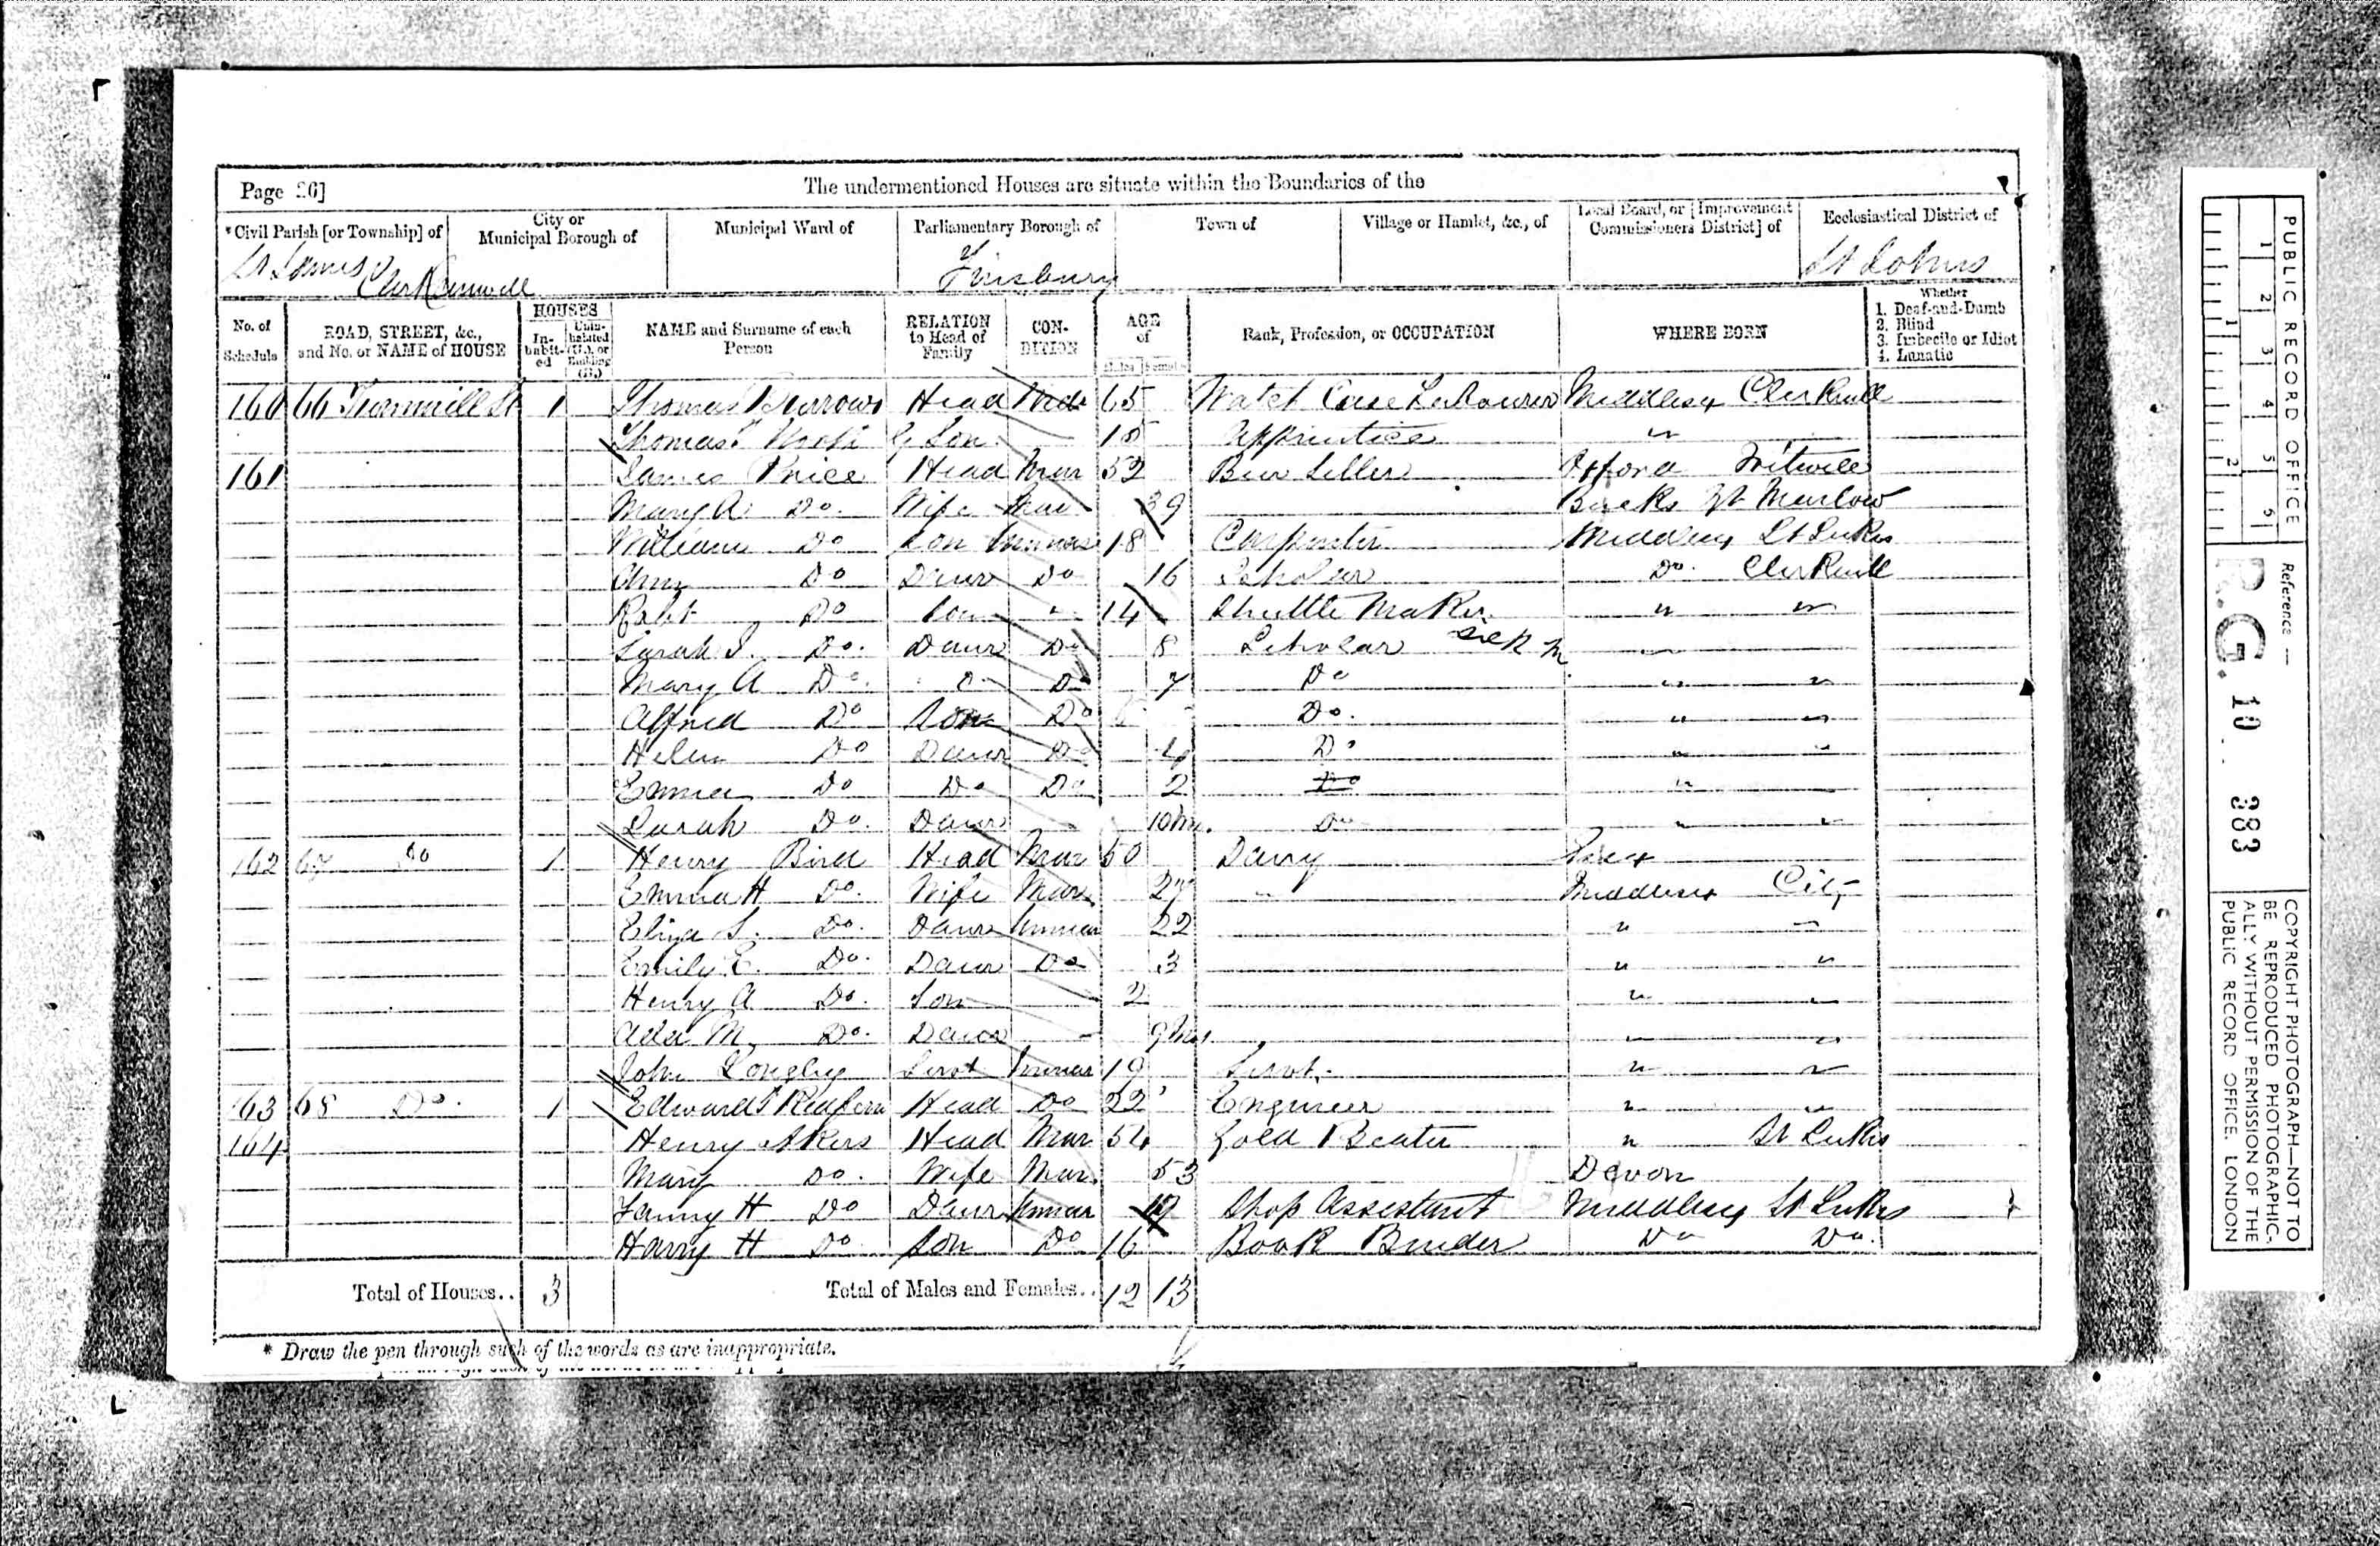 Page 26]
The undermentioned Houses are situate within the Boundaries of the
*Civil Parish [or Township] of City or Municipal Borough of Municipal Ward of Parliamentary Borough of Town of Village or Hamlet, &c., of Local Board, or [Improvement Commissioners District] of Ecclesiastical District of
St James Clerkenwell Finsbury St Johns
No. of Schedule ROAD, STREET, &c., and No. or NAME of HOUSE HOUSES Inhabited Uninhabited (U.), or Building (B.) NAME and Surname of each Person RELATION to Head of Family CONDITION AGE of Males Females Rank, Profession, or OCCUPATION WHERE BORN Whether 1. Deaf-and-Dumb 2. Blind 3. Imbecile or Idiot 4. Lunatic
160 66 Turnmill St 1 Thomas Burrows Head Wid 65 Watch Case Middlesex Clerkenll
Thomas G Son 15 Apprentice "
161 James Price Head Mar 52 Beer Seller Oxford
Mary A Do. Wife Mar 39 Bucks Gt Marlow
William Do Son Unmar 18 Carpenter Middlesex St Lukes
Ann Do Daur Do 16 Scholar Do. Clerkenll
Robt Do Son " 14 Shuttle Maker " "
Sarah J. Do. Daur Do 8 Scholar "
Mary A Do. Do 7 Do " "
Alfred Do Son Do 6 Do. " "
Helen Do Daur Do 4 Do " "
Emma Do Do Do 2 Do "
Sarah Do. Daur 10 Mo. Do " "
162 67 Do 1 Henry Bird Head Mar 50 Dairy
Emma H Do. Wife Mar 27 " Middlesex City
Eliza S. Do. Daur Unmar 22 " "
Emily E. Do. Daur Do 3 " "
Henry A Do. Son 2 " "
Ada M. Do. Daur 9 Mo " "
John Longley Servt Unmar 19 Servt. " "
163 68 Do. 1 Edward T Redfern Head Do 22 Engineer " "
164 Henry Akers Head Mar 54 Gold Beater " St Lukes
Mary Do. Wife Mar. 53 Devon
Fanny H Do Daur Unmar Shop Assistant Middlesex St Lukes
Harry H Do Son Do 16 Book Binder Do Do.
Total of Houses.. 3 Total of Males and Females.. 12 13
* Draw the pen through such of the words as are inappropriate.
PUBLIC RECORD OFFICE
1 2 3 4 5 6
1 2
Reference —
R.G. 10 383
COPYRIGHT PHOTOGRAPH—NOT TO
BE REPRODUCED PHOTOGRAPHIC-
ALLY WITHOUT PERMISSION OF THE
PUBLIC RECORD OFFICE, LONDON